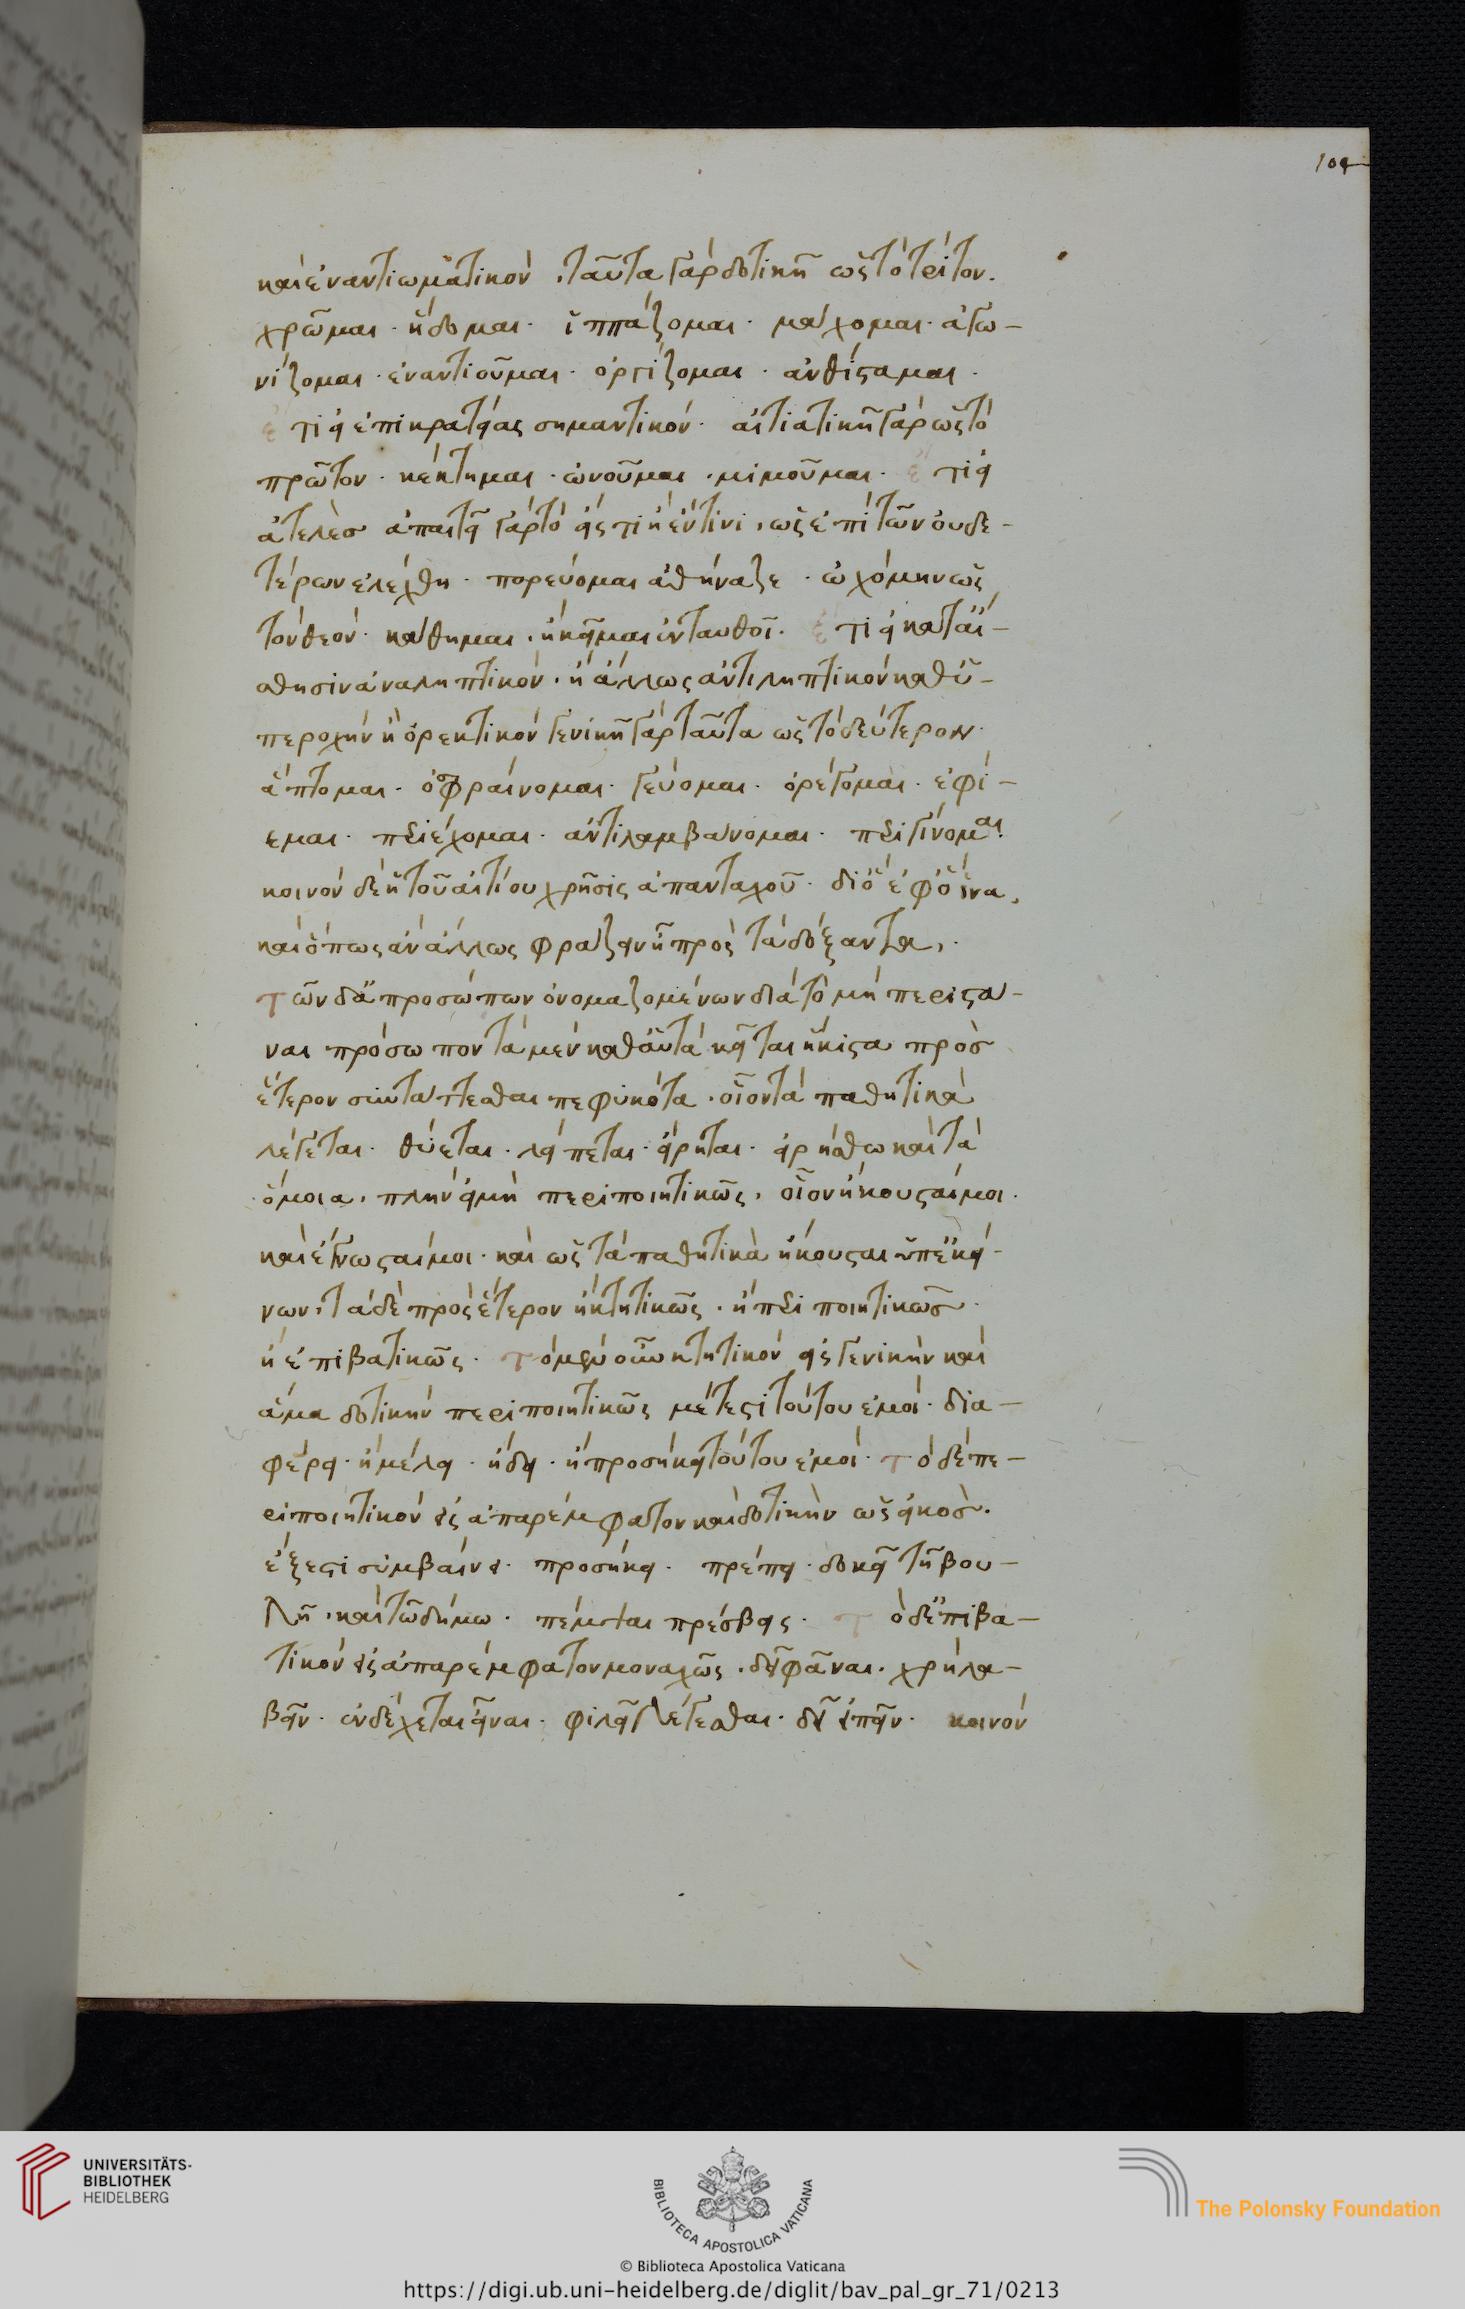 104
καὶ ἐναντιωματικὸν · ταῦτα γὰρ δοτικῇ ὡς τὸ τρίτον.
χρῶμαι · ἥδομαι · ἱππάζομαι · μάχομαι · ἀγω-
νίζομαι · ἐναντιοῦμαι · ὀργίζομαι · ἀνθίσταμαι ·
ἔτι ἢ ἐπικρατείας σημαντικόν · αἰτιατικῇ γὰρ ὡς τὸ
πρῶτον · κέκτημαι · ὠνοῦμαι · μιμοῦμαι · ἔτι ἢ
ἀτελὲσ ἀπαιτεῖ γὰρ τὸ εἴς τι ἢ ἔν τινι, ὡς ἐπὶ τῶν ουδε-
τέρων ἐλέχθη · πορεύομαι ἀθήναζε · ᾠχόμην ὡς
τὸν θεόν · κάθημαι · ἢ κεῖμαι ἐνταυθοῖ · ἔτι ἢ κατ' αἴ-
σθησιν ἀναληπτικόν · ἢ ἄλλως ἀντιληπτικὸν καθ' ὑ-
περοχὴν ἢ ὀρεκτικόν γενικῇ γὰρ ταῦτα ὡς τὸ δεύτερον ·
ἅπτομαι · ὀσφραίνομαι · γεύομαι · ὀρέγομαι · ἐφί-
εμαι · περιέχομαι · ἀντιλαμβάνομαι · περιγίνομαι
κοινὸν δὲ ἡ τοῦ αἰτίου χρῆσις ἁπανταχοῦ · διὸ ἐφ' ὃ ἵνα,
καὶ ὅπως ἂν ἄλλως φράζειν ᾖ πρὸς τὰ δόξαντα, ·
τῶν δ' ἀπροσώπων ὀνομαζομένων διὰ τὸ μὴ περιστά-
ναι πρόσωπον τὰ μὲν καθ' αὑτὰ κεῖται ἥκιστα πρὸσ
ἕτερον συντάττεσθαι πεφυκότα · οἷον τὰ παθητικὰ
λέγεται · θύεται · λείπεται · εἴρηται · εἰρήσθω καὶ τὰ
ὅμοια · πλὴν εἰ μὴ περιποιητικῶς · οἷον ἤκουσταί μοι ·
καὶ ἔγνωσταί μοι · καὶ ὡς τὰ παθητικὰ ἤκουσται ὑπ' ἐκεί-
νων, τὰ δὲ πρὸς ἕτερον ἢ κτητικῶς · ἢ περιποιητικῶσ ·
ἢ ἐπιβατικῶς · τὸ μὲν οὖν κτητικὸν εἰς γενικὴν καὶ
ἅμα δοτικὴν περιποιητικῶς μέτεστι τούτου ἐμοί · δια-
φέρει · ἢ μέλει · ἢ δεῖ · ἢ προσήκει τούτου ἐμοί · τὸ δὲ πε-
ριποιητικὸν εἰς ἀπαρέμφατον καὶ δοτικὴν ὡς εἰκόσ.
ἔξεστι συμβαίνει · προσήκει · πρέπει · δοκεῖ τῇ βου-
λῇ · καὶ τῷ δήμῳ · πέμψαι πρέσβεις · τὸ δ' ἐπιβα-
τικὸν εἰς ἀπαρέμφατον μοναχῶς · δεῖ φᾶναι · χρὴ λα-
βεῖν · ἐνδέχεται εἶναι · φιλεῖ λέγεσθαι · δεῖ εἰπεῖν · κοινὸν
UNIVERSITÄTS-
BIBLIOTHEK
HEIDELBERG
BIBLIOTECA APOSTOLICA VATICANA
The Polonsky Foundation
© Biblioteca Apostolica Vaticana
https://digi.ub.uni-heidelberg.de/diglit/bav_pal_gr_71/0213